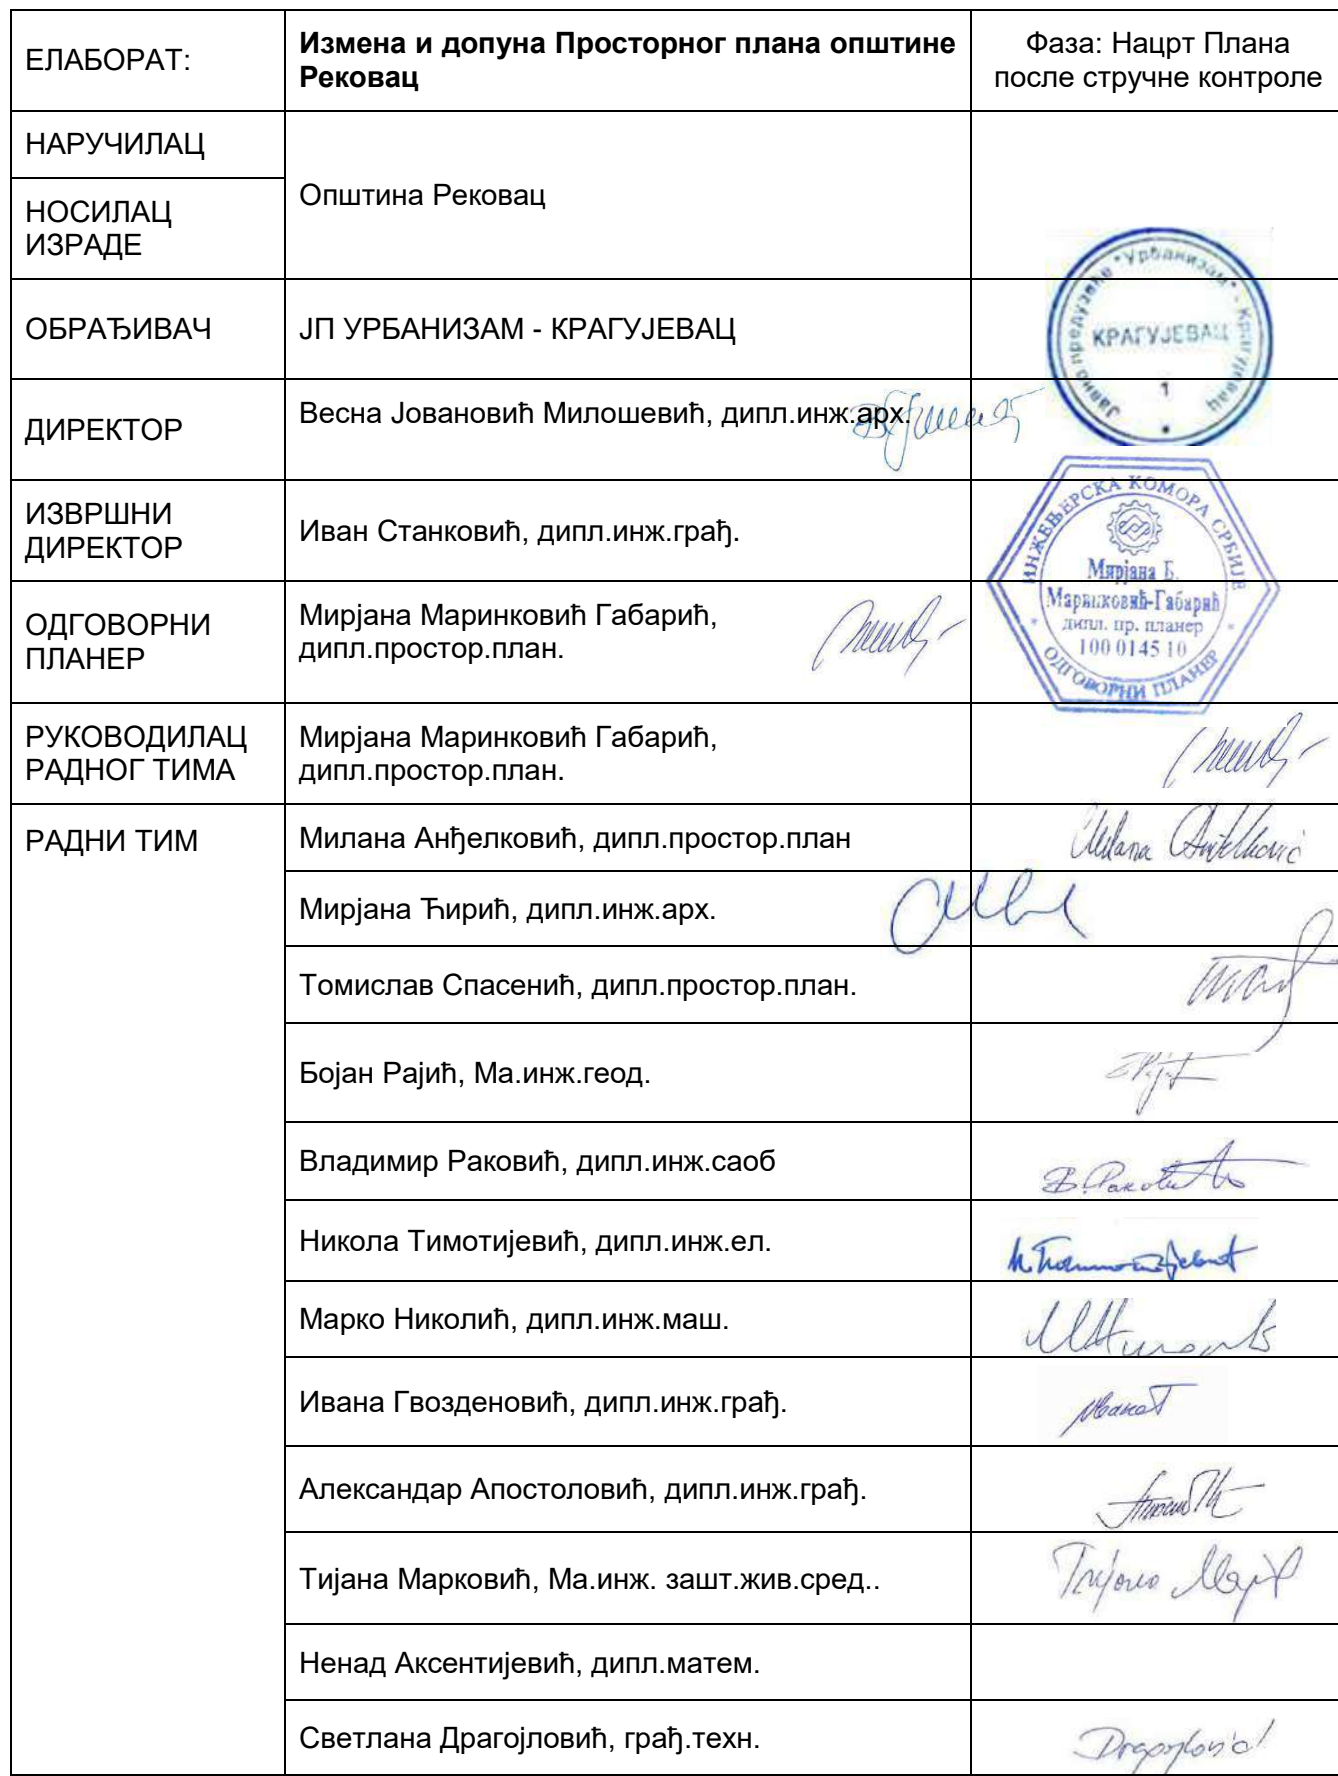 ЕЛАБОРАТ:
Измена и допуна Просторног плана општине
Рековац
Фаза: Нацрт Плана
после стручне контроле
НАРУЧИЛАЦ
НОСИЛАЦ
ИЗРАДЕ
Општина Рековац
ОБРАЂИВАЧ
ЈП УРБАНИЗАМ - КРАГУЈЕВАЦ
Јавно предузеће "Урбанизам" - Крагујевац
КРАГУЈЕВАЦ
1
ДИРЕКТОР
Весна Јовановић Милошевић, дипл.инж.арх.
ИЗВРШНИ
ДИРЕКТОР
Иван Станковић, дипл.инж.грађ.
ИНЖЕЊЕРСКА КОМОРА СРБИЈЕ
Мирјана Б.
Маринковић-Габарић
дипл. пр. планер
100 0145 10
ОДГОВОРНИ ПЛАНЕР
ОДГОВОРНИ
ПЛАНЕР
Мирјана Маринковић Габарић,
дипл.простор.план.
РУКОВОДИЛАЦ
РАДНОГ ТИМА
Мирјана Маринковић Габарић,
дипл.простор.план.
РАДНИ ТИМ
Милана Анђелковић, дипл.простор.план
Мирјана Ћирић, дипл.инж.арх.
Томислав Спасенић, дипл.простор.план.
Бојан Рајић, Ма.инж.геод.
Владимир Раковић, дипл.инж.саоб
Никола Тимотијевић, дипл.инж.ел.
Марко Николић, дипл.инж.маш.
Ивана Гвозденовић, дипл.инж.грађ.
Александар Апостоловић, дипл.инж.грађ.
Тијана Марковић, Ма.инж. зашт.жив.сред..
Ненад Аксентијевић, дипл.матем.
Светлана Драгојловић, грађ.техн.